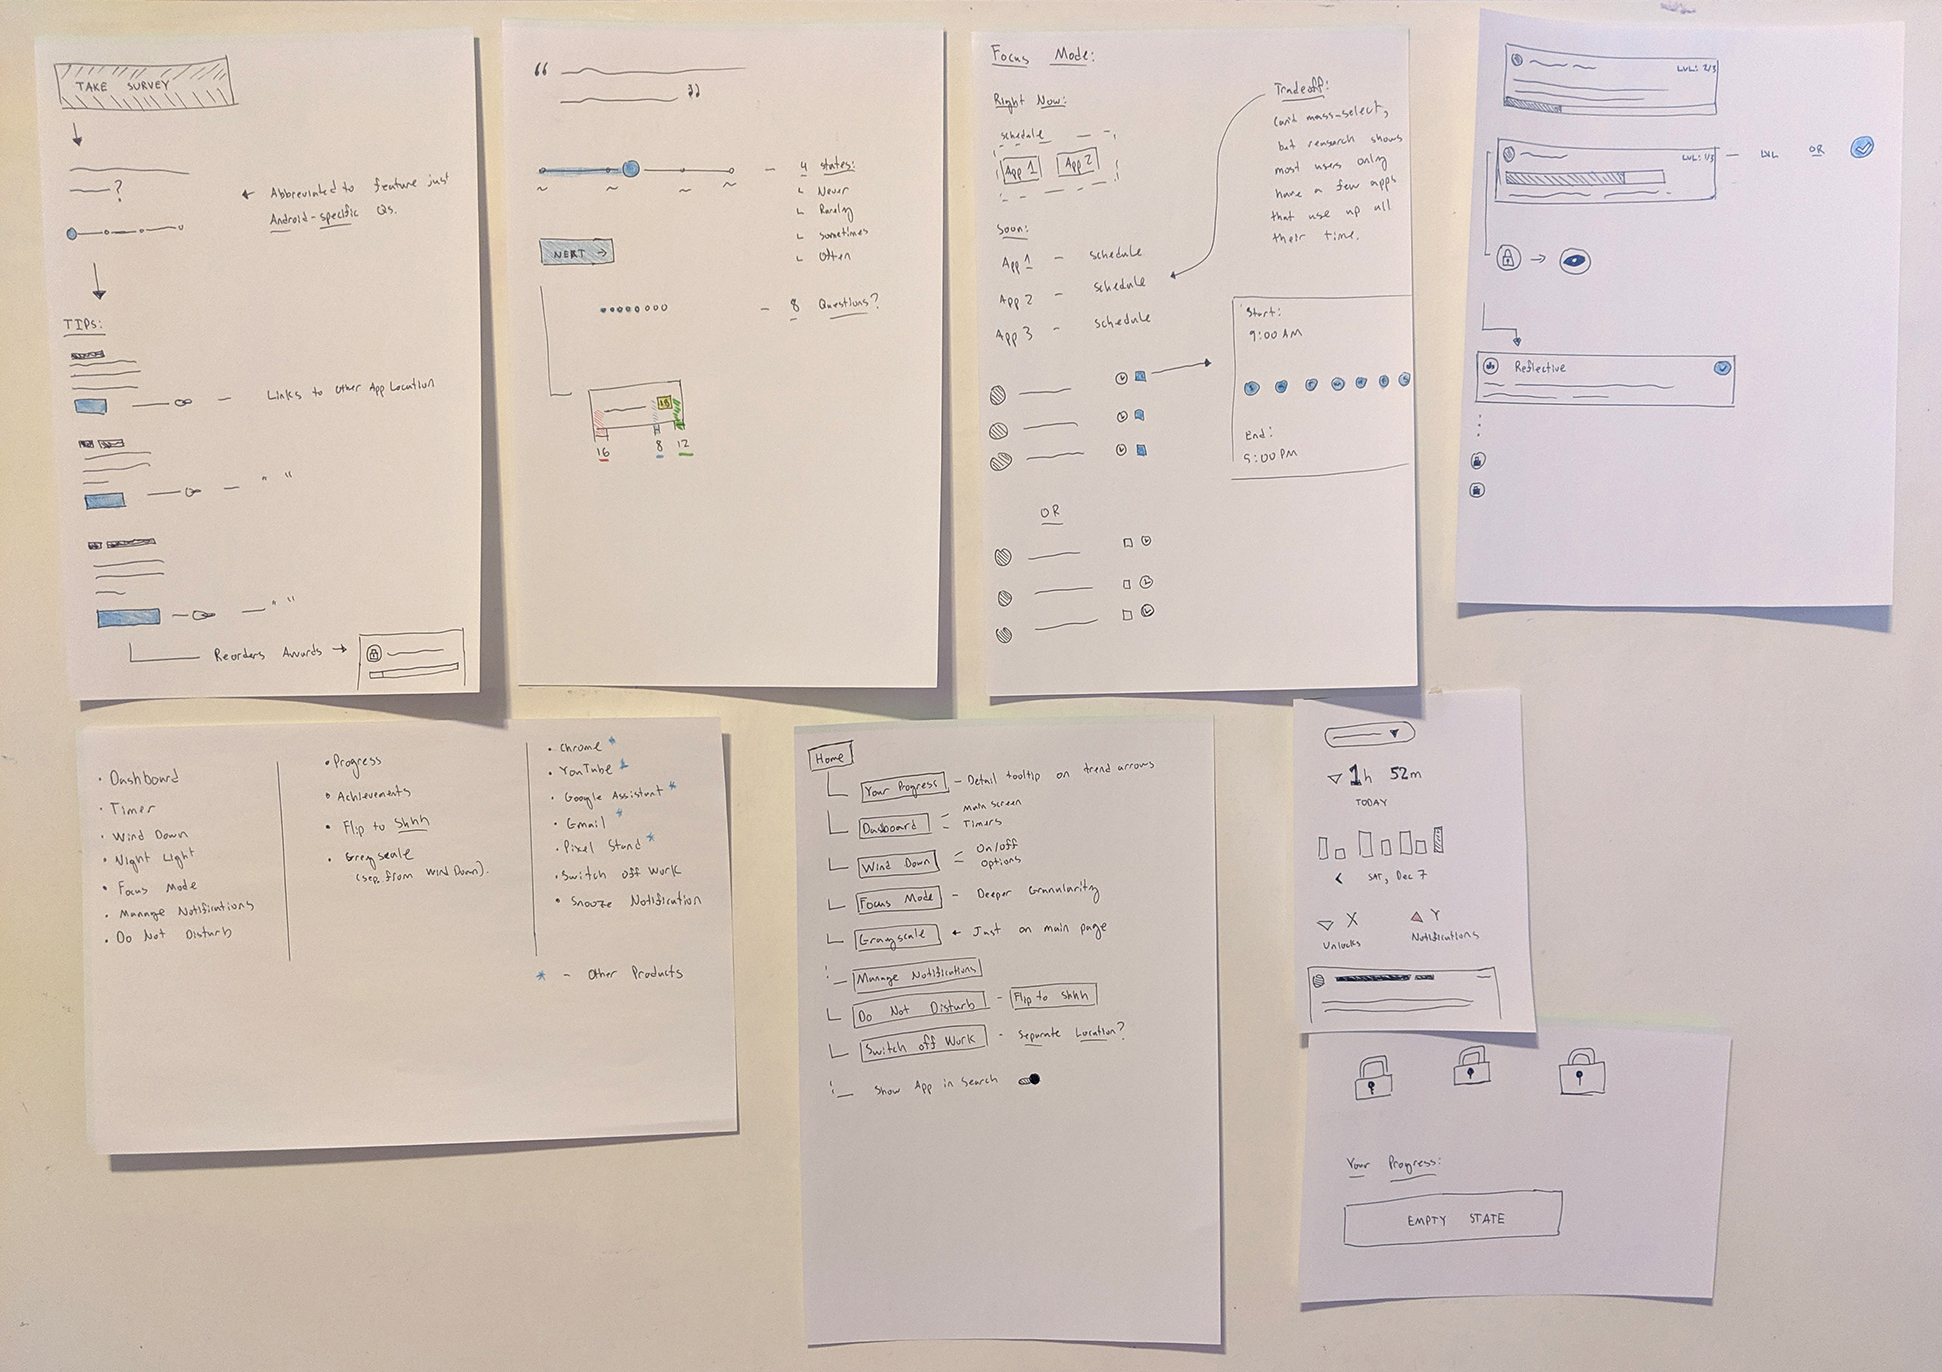 TAKE SURVEY
?
← Abbreviated to feature just
Android-specific Qs.
TIPs:
— Links to Other App Location
— " "
— " "
Reorders Awards →
“
”
— 4 states:
Never
Rarely
Sometimes
Often
NEXT →
— 8 Questions?
18
16
8
12
Focus Mode:
Right Now:
schedule
App 1
App 2
Soon:
App 1 — schedule
App 2 — schedule
App 3 — schedule
OR
Tradeoff:
Can't mass-select,
but research shows
most users only
have a few apps
that use up all
their time.
Start:
9:00 AM
End:
5:00 PM
LVL: 2/3
LVL: 1/3
— LVL OR
Reflective
• Dashboard
• Timer
• Wind Down
• Night Light
• Focus Mode
• Manage Notifications
• Do Not Disturb
• Progress
• Achievements
• Flip to Shhh
• Greyscale
(sep. from Wind Down).
• Chrome *
• YouTube *
• Google Assistant *
• Gmail *
• Pixel Stand *
• Switch off Work
• Snooze Notification
* — Other Products
Home
Your Progress — Detail tooltip on trend arrows
Dashboard — Main screen
— Timers
Wind Down — On/off
— Options
Focus Mode — Deeper Granularity
Grayscale ← Just on main page
Manage Notifications
Do Not Disturb — Flip to Shhh
Switch off Work — Separate Location?
Show App in Search
1h 52m
TODAY
< SAT, Dec 7
X
Unlocks
Y
Notifications
Your Progress:
EMPTY STATE